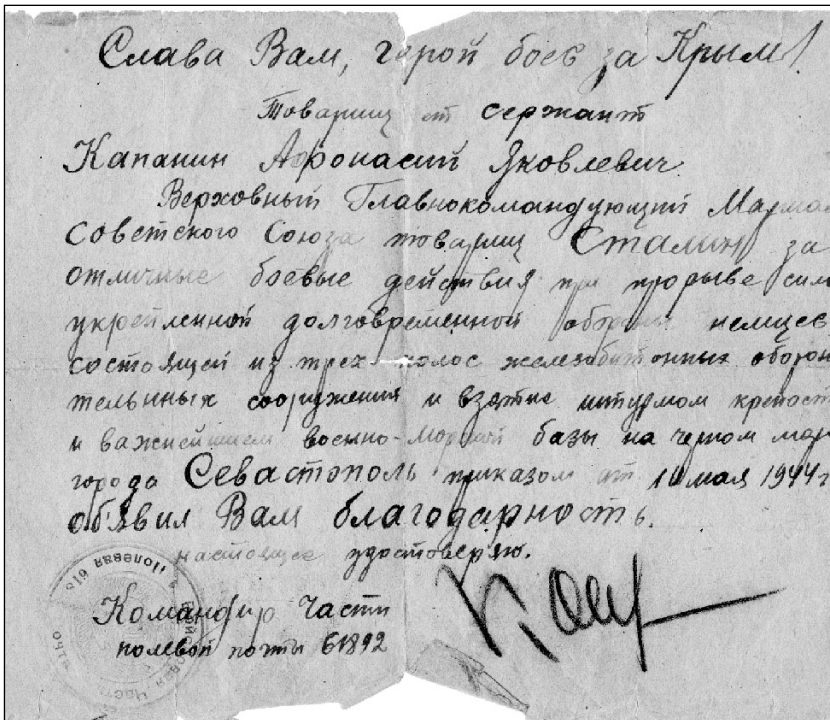 Слава Вам, герой боев за Крым!
Товарищ ст сержант
Капанин Афонасий Яковлевич.
Верховный Главнокомандующий Марша
Советского Союза товарищ Сталин за
отличные боевые действия при прорыве сил
укрепленной долговременной обороны немцев
состоящей из трех полос железобетонных оборон
тельнных сооружения и взятие штурмом крепост
и важнейшем военно-морской базы на черном мор
города Севастополь приказом от 10 мая 1944 г
об'явил Вам благодарность.
настоящее удостоверяю.
Командир Части
полевой почты 61892
Полевая